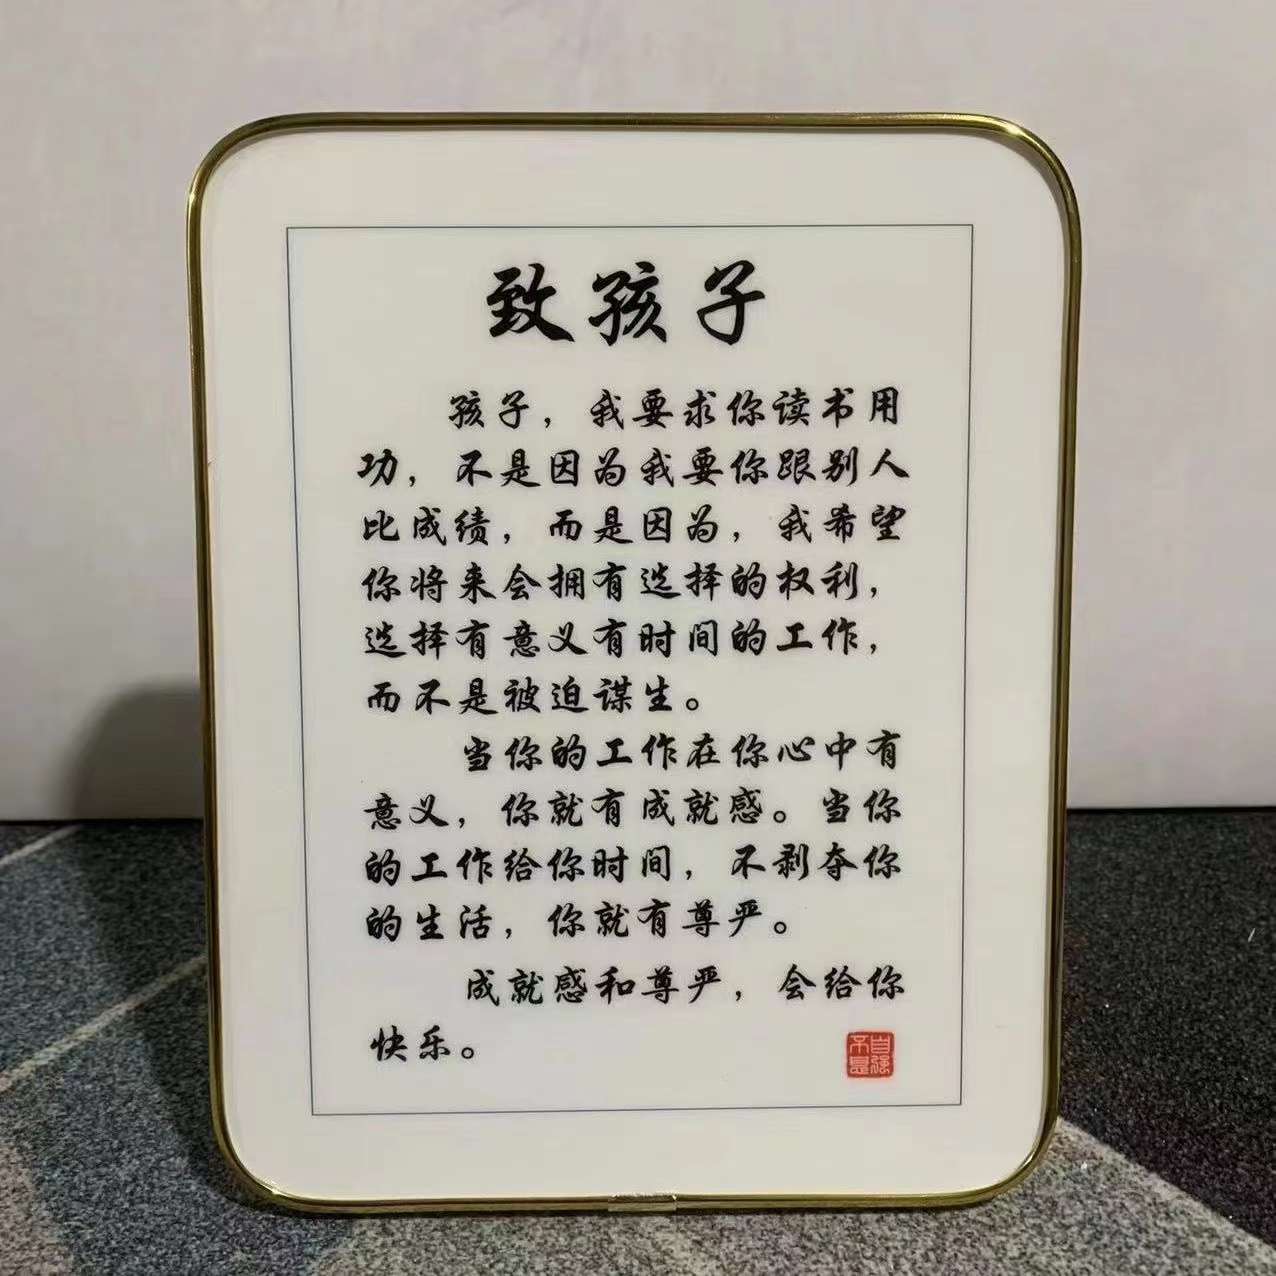 致孩子
孩子，我要求你读书用
功，不是因为我要你跟别人
比成绩，而是因为，我希望
你将来会拥有选择的权利，
选择有意义有时间的工作，
而不是被迫谋生。
当你的工作在你心中有
意义，你就有成就感。当你
的工作给你时间，不剥夺你
的生活，你就有尊严。
成就感和尊严，会给你
快乐。
自强
不息